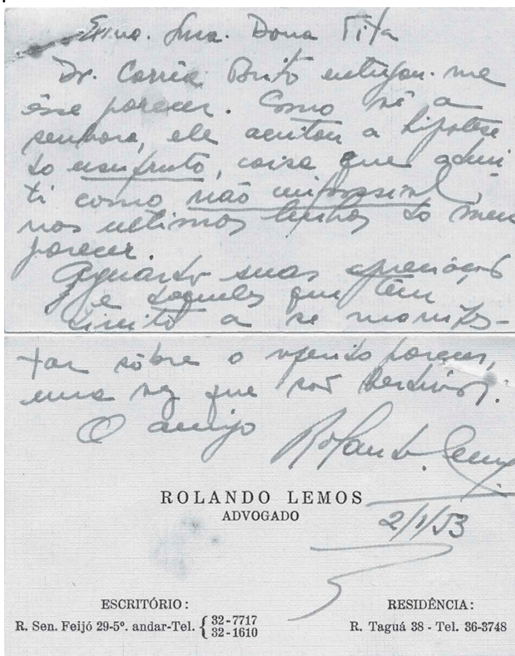 Exma. Sma. Dona Tita
Dr. Corrêa Brito entregou-me
êsse parecer. Como vê a
senhora, ele aceitou a hipotese
do usufruto, coisa que admi
ti como não impossivel,
nos ultimos linhas do meu
parecer.
Aguardo suas apreciações
e daqueles que têm
direito a se manifes-
tar sôbre o referido parecer,
uma vez que são herdeiros.
O amigo Rolando Lemos
ROLANDO LEMOS
ADVOGADO
2/1/53
ESCRITÓRIO:
R. Sen. Feijó 29-5º. andar-Tel. { 32-7717
32-1610
RESIDÊNCIA:
R. Taguá 38 - Tel. 36-3748